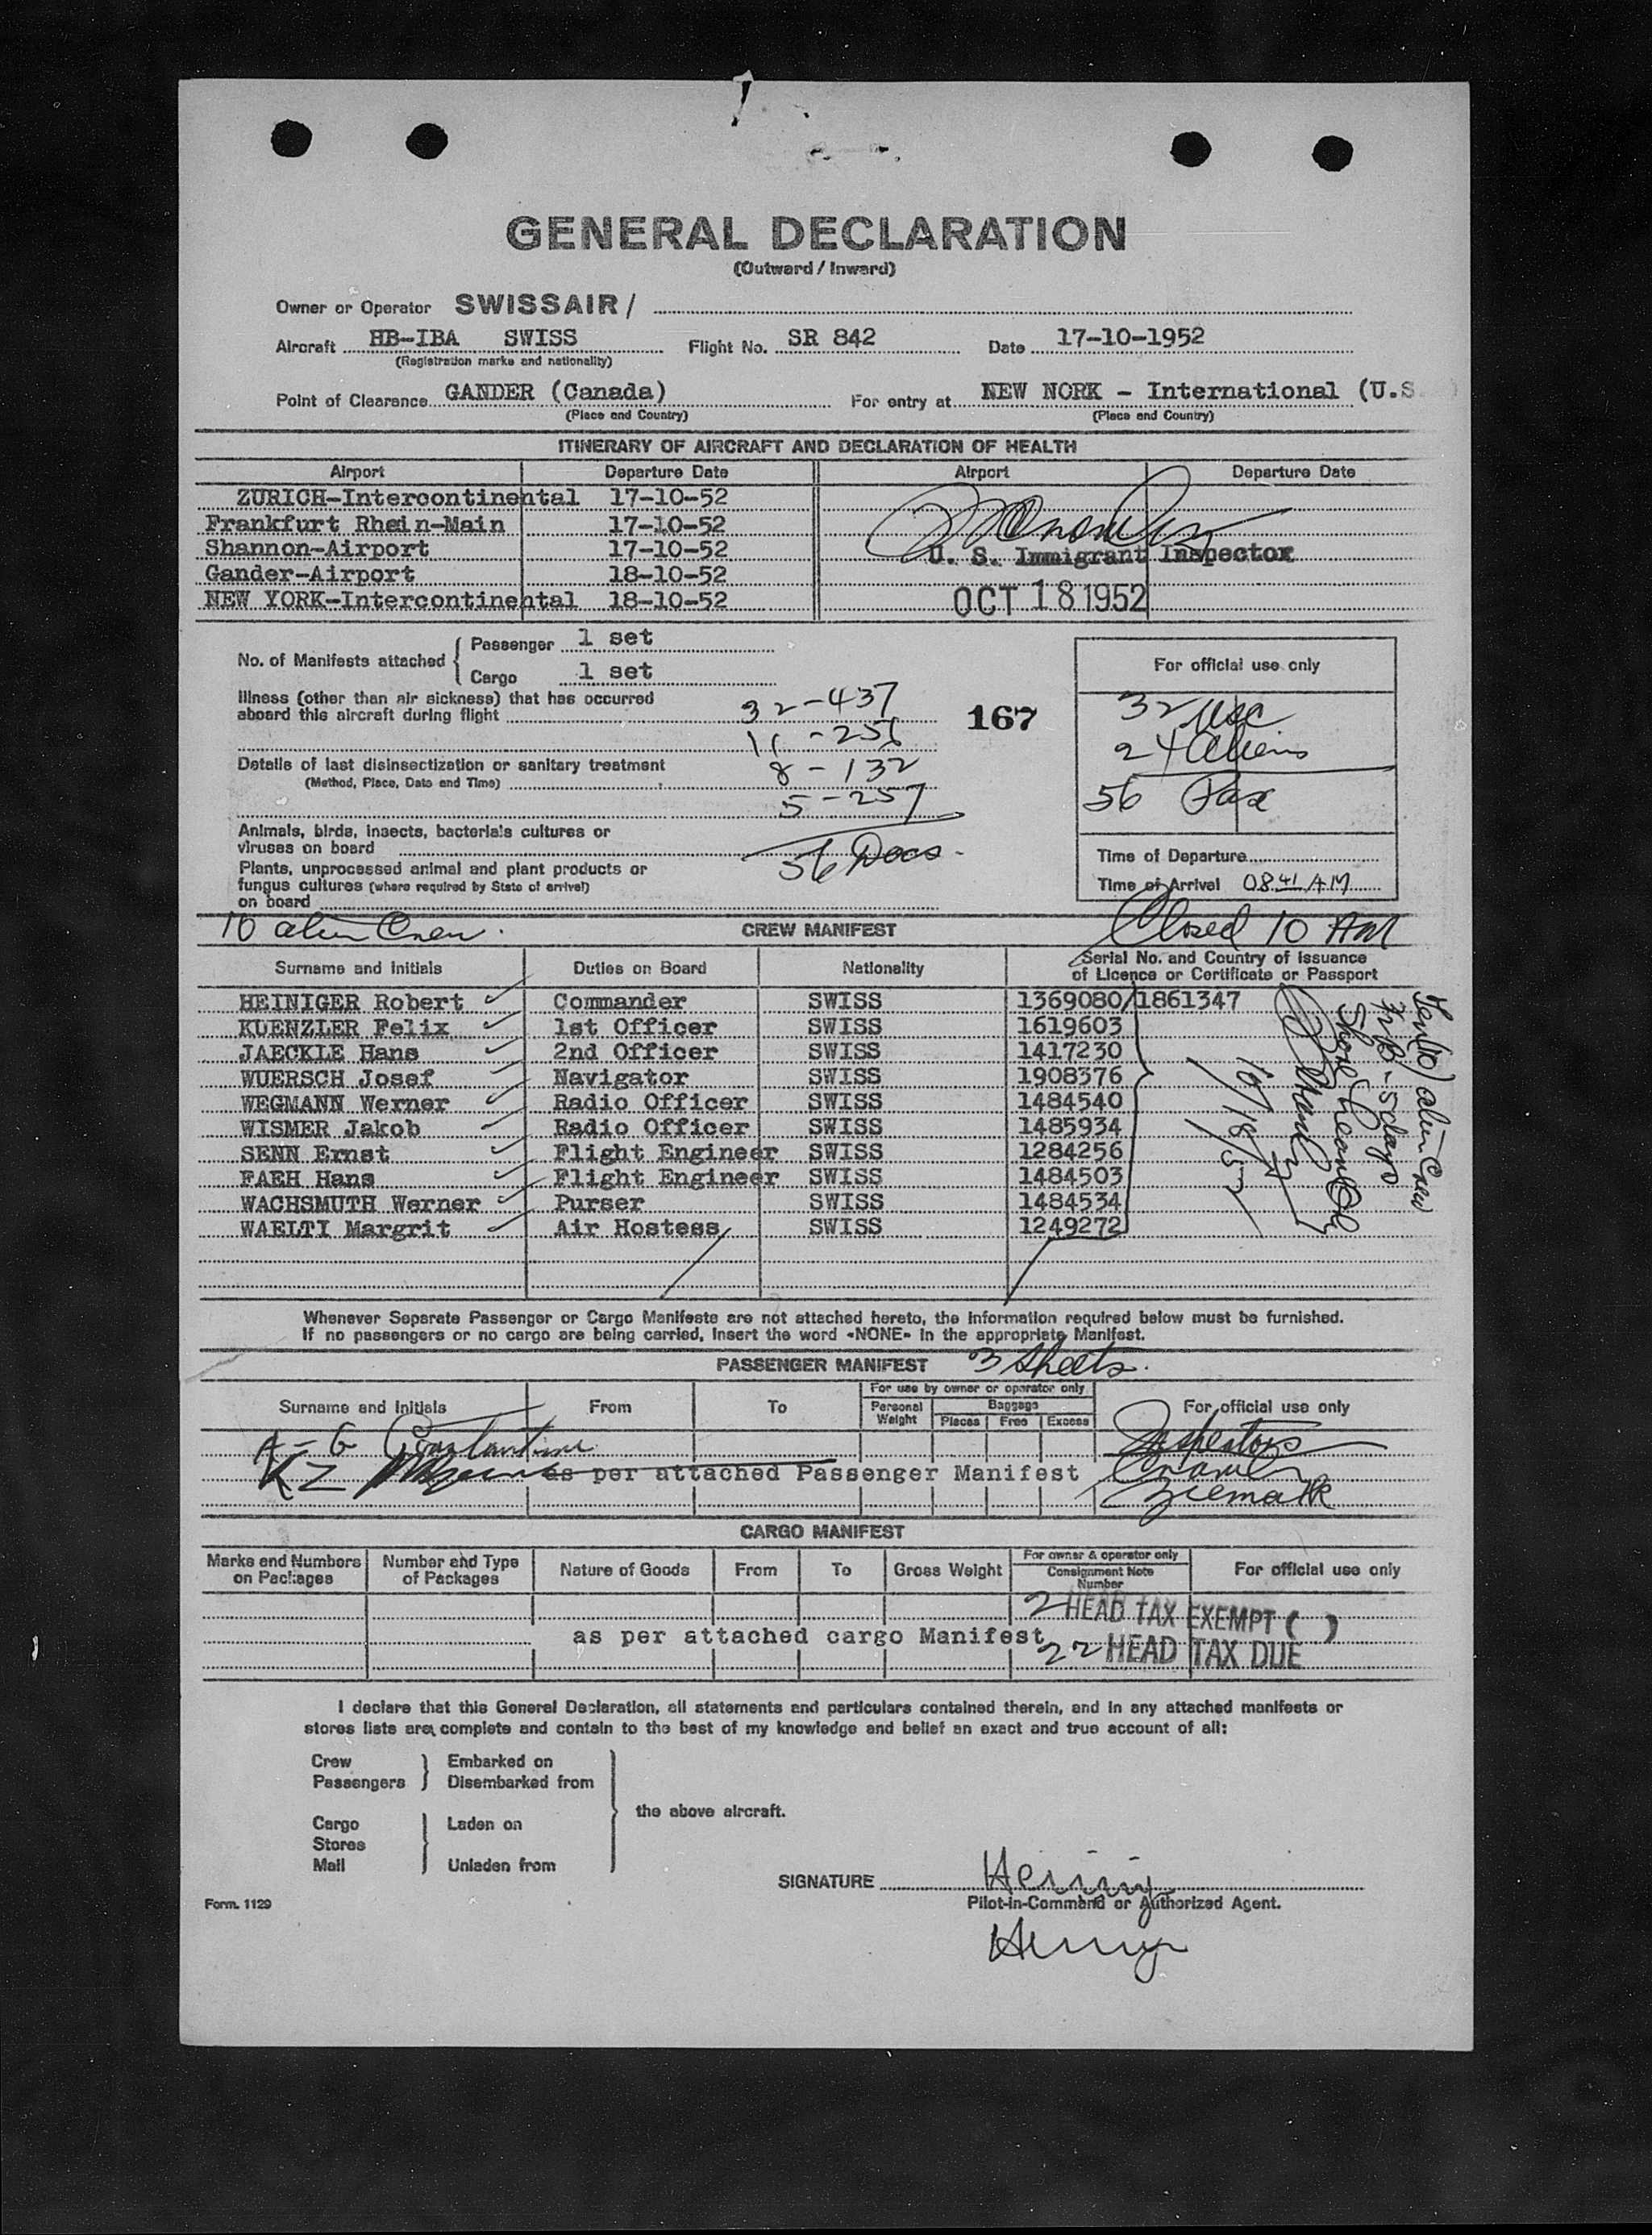 GENERAL DECLARATION
(Outward / Inward)
Owner or Operator SWISSAIR /
Aircraft HB-IBA SWISS Flight No. SR 842 Date 17-10-1952
(Registration marks and nationality)
Point of Clearance GANDER (Canada) For entry at NEW NORK - International (U.S.
(Place and Country) (Place and Country)
ITINERARY OF AIRCRAFT AND DECLARATION OF HEALTH
Airport Departure Date Airport Departure Date
ZURICH-Intercontinental 17-10-52
Frankfurt Rhein-Main 17-10-52
Shannon-Airport 17-10-52
U. S. Immigrant Inspector
Gander-Airport 18-10-52
NEW YORK-Intercontinental 18-10-52
OCT 18 1952
No. of Manifests attached
Passenger 1 set
Cargo 1 set
For official use only
Illness (other than air sickness) that has occurred
aboard this aircraft during flight
32-437
167
32 USC
11-256
24 Aliens
Details of last disinsectization or sanitary treatment
(Method, Place, Date and Time)
8-132
5-257
56 Pax
Animals, birds, insects, bacterials cultures or
viruses on board
56 Docs.
Time of Departure
Plants, unprocessed animal and plant products or
fungus cultures (where required by State of arrival)
on board
Time of Arrival 0841 AM
10 alien Crew.
CREW MANIFEST
Closed 10 AM
Surname and Initials Duties on Board Nationality Serial No. and Country of Issuance
of Licence or Certificate or Passport
HEINIGER Robert Commander SWISS 1369080/1861347
KUENZLER Felix 1st Officer SWISS 1619603
JAECKLE Hans 2nd Officer SWISS 1417230
WUERSCH Josef Navigator SWISS 1908376
WEGMANN Werner Radio Officer SWISS 1484540
WISMER Jakob Radio Officer SWISS 1485934
SENN Ernst Flight Engineer SWISS 1284256
FAEH Hans Flight Engineer SWISS 1484503
WACHSMUTH Werner Purser SWISS 1484534
WAELTI Margrit Air Hostess SWISS 1249272
Ten (10) alien Crew
5 days
Shore Leave
10/18/52
Whenever Separate Passenger or Cargo Manifests are not attached hereto, the information required below must be furnished.
If no passengers or no cargo are being carried, insert the word «NONE» in the appropriate Manifest.
PASSENGER MANIFEST 3 sheets.
Surname and Initials From To
For use by owner or operator only
Personal Weight
Baggage
Pieces Free Excess
For official use only
A-G
Inspectors
KZ as per attached Passenger Manifest
CARGO MANIFEST
Marks and Numbers on Packages
Number and Type of Packages
Nature of Goods From To Gross Weight
For owner & operator only
Consignment Note Number
For official use only
2 HEAD TAX EXEMPT ( )
as per attached cargo Manifest
22 HEAD TAX DUE
I declare that this General Declaration, all statements and particulars contained therein, and in any attached manifests or
stores lists are, complete and contain to the best of my knowledge and belief an exact and true account of all:
Crew Embarked on
Passengers Disembarked from
the above aircraft.
Cargo Laden on
Stores
Mail Unladen from
SIGNATURE
Form. 1129
Pilot-in-Command or Authorized Agent.